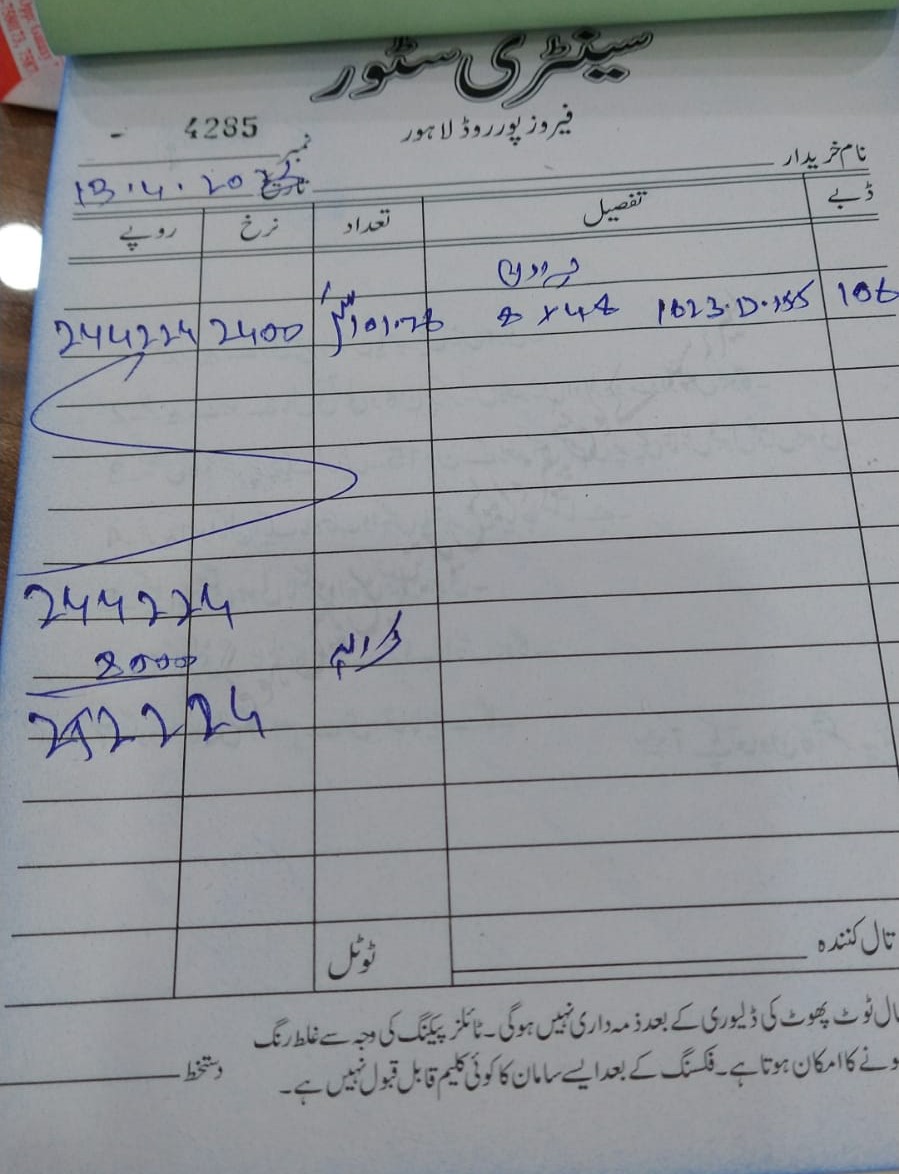 سینٹری سٹور
فیروز پور روڈ لاہور
نمبر 4285 -
نام خریدار
تاریخ 13.4.20
ڈبے تفصیل تعداد نرخ روپے
106 1023.D.155 8 x 48 101.76 2400 244224
244224
8000 کرایہ
252224
ٹوٹل
تال کنندہ
ال ٹوٹ پھوٹ کی ڈلیوری کے بعد ذمہ داری نہیں ہوگی۔ ٹائلز پیکنگ کی وجہ سے غلط رنگ
ونے کا امکان ہوتا ہے۔ فکسنگ کے بعد ایسے سامان کا کوئی کلیم قابل قبول نہیں ہے۔
دستخط